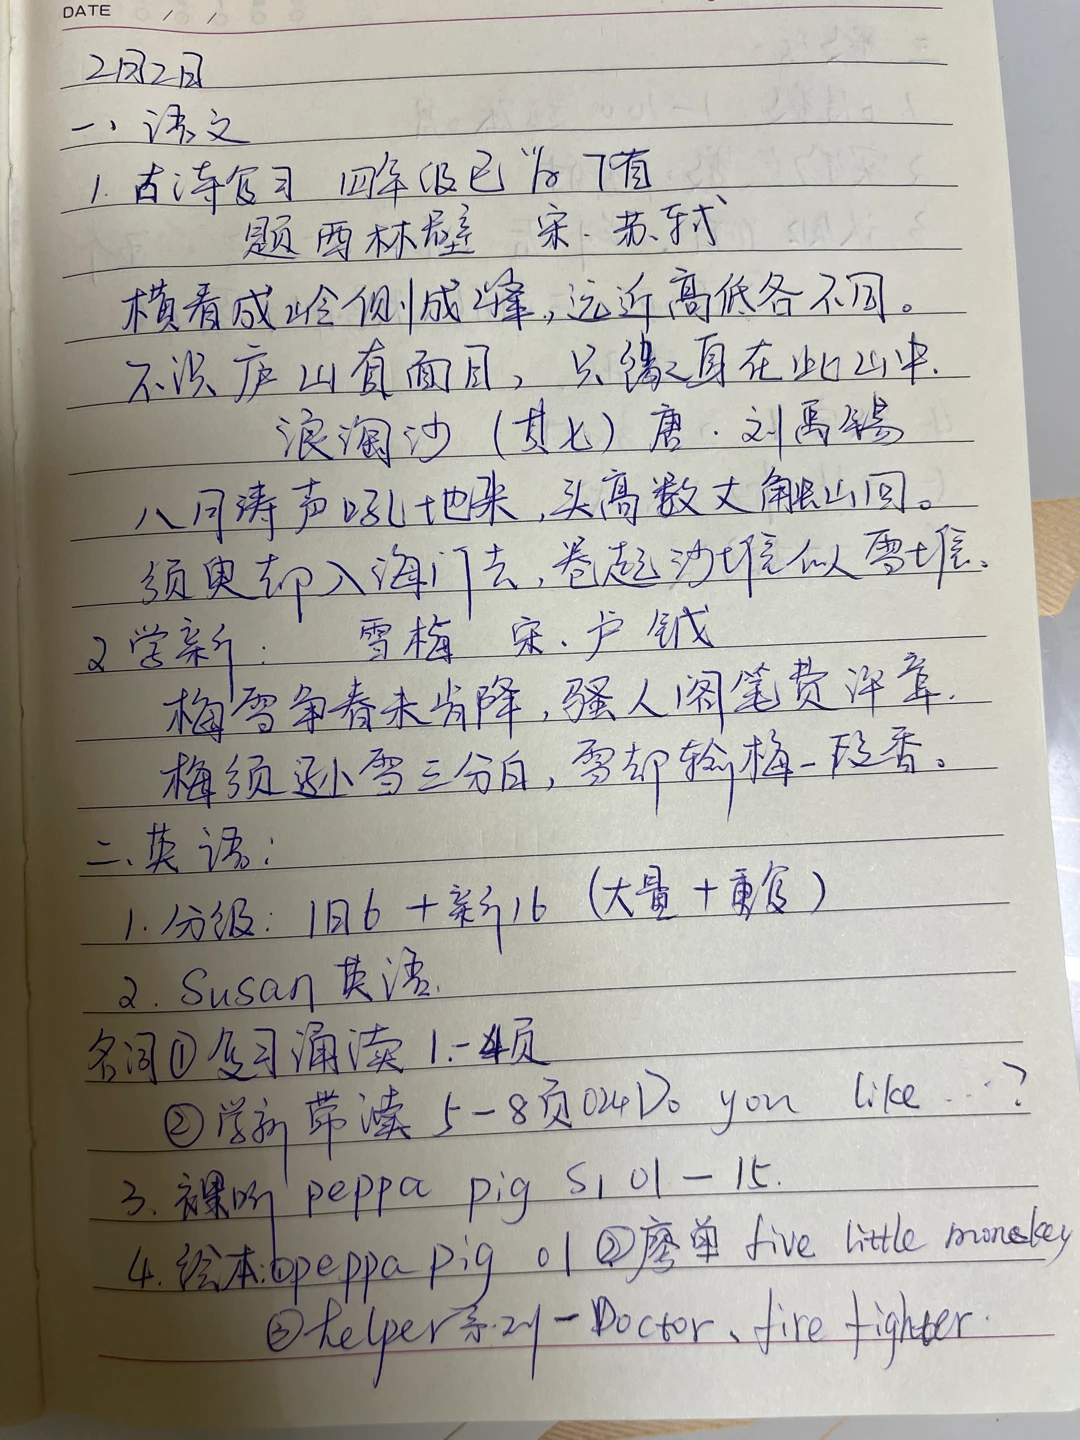 DATE / /
2月2日
一、语文
1. 古诗复习 四年级已
题西林壁 宋·苏轼
横看成岭侧成峰,远近高低各不同。
不识庐山真面目,只缘身在此山中.
浪淘沙(其七)唐·刘禹锡
八月涛声吼地来,头高数丈触山回。
须臾却入海门去,卷起沙堆似雪堆。
2 学新: 雪梅 宋·卢钺
梅雪争春未肯降,骚人阁笔费评章.
梅须逊雪三分白,雪却输梅一段香。
二、英语:
1. 分级:旧6 + 新16 (大量+重复)
2. Susan 英语.
名词①复习诵读 1.-4页
②学新带读 5-8页 024 Do you like ...?
3. 裸听 peppa pig S1 01-15.
4. 绘本:①peppa pig 01 ②廖单 five little monkey
③helper系列-Doctor、fire fighter.